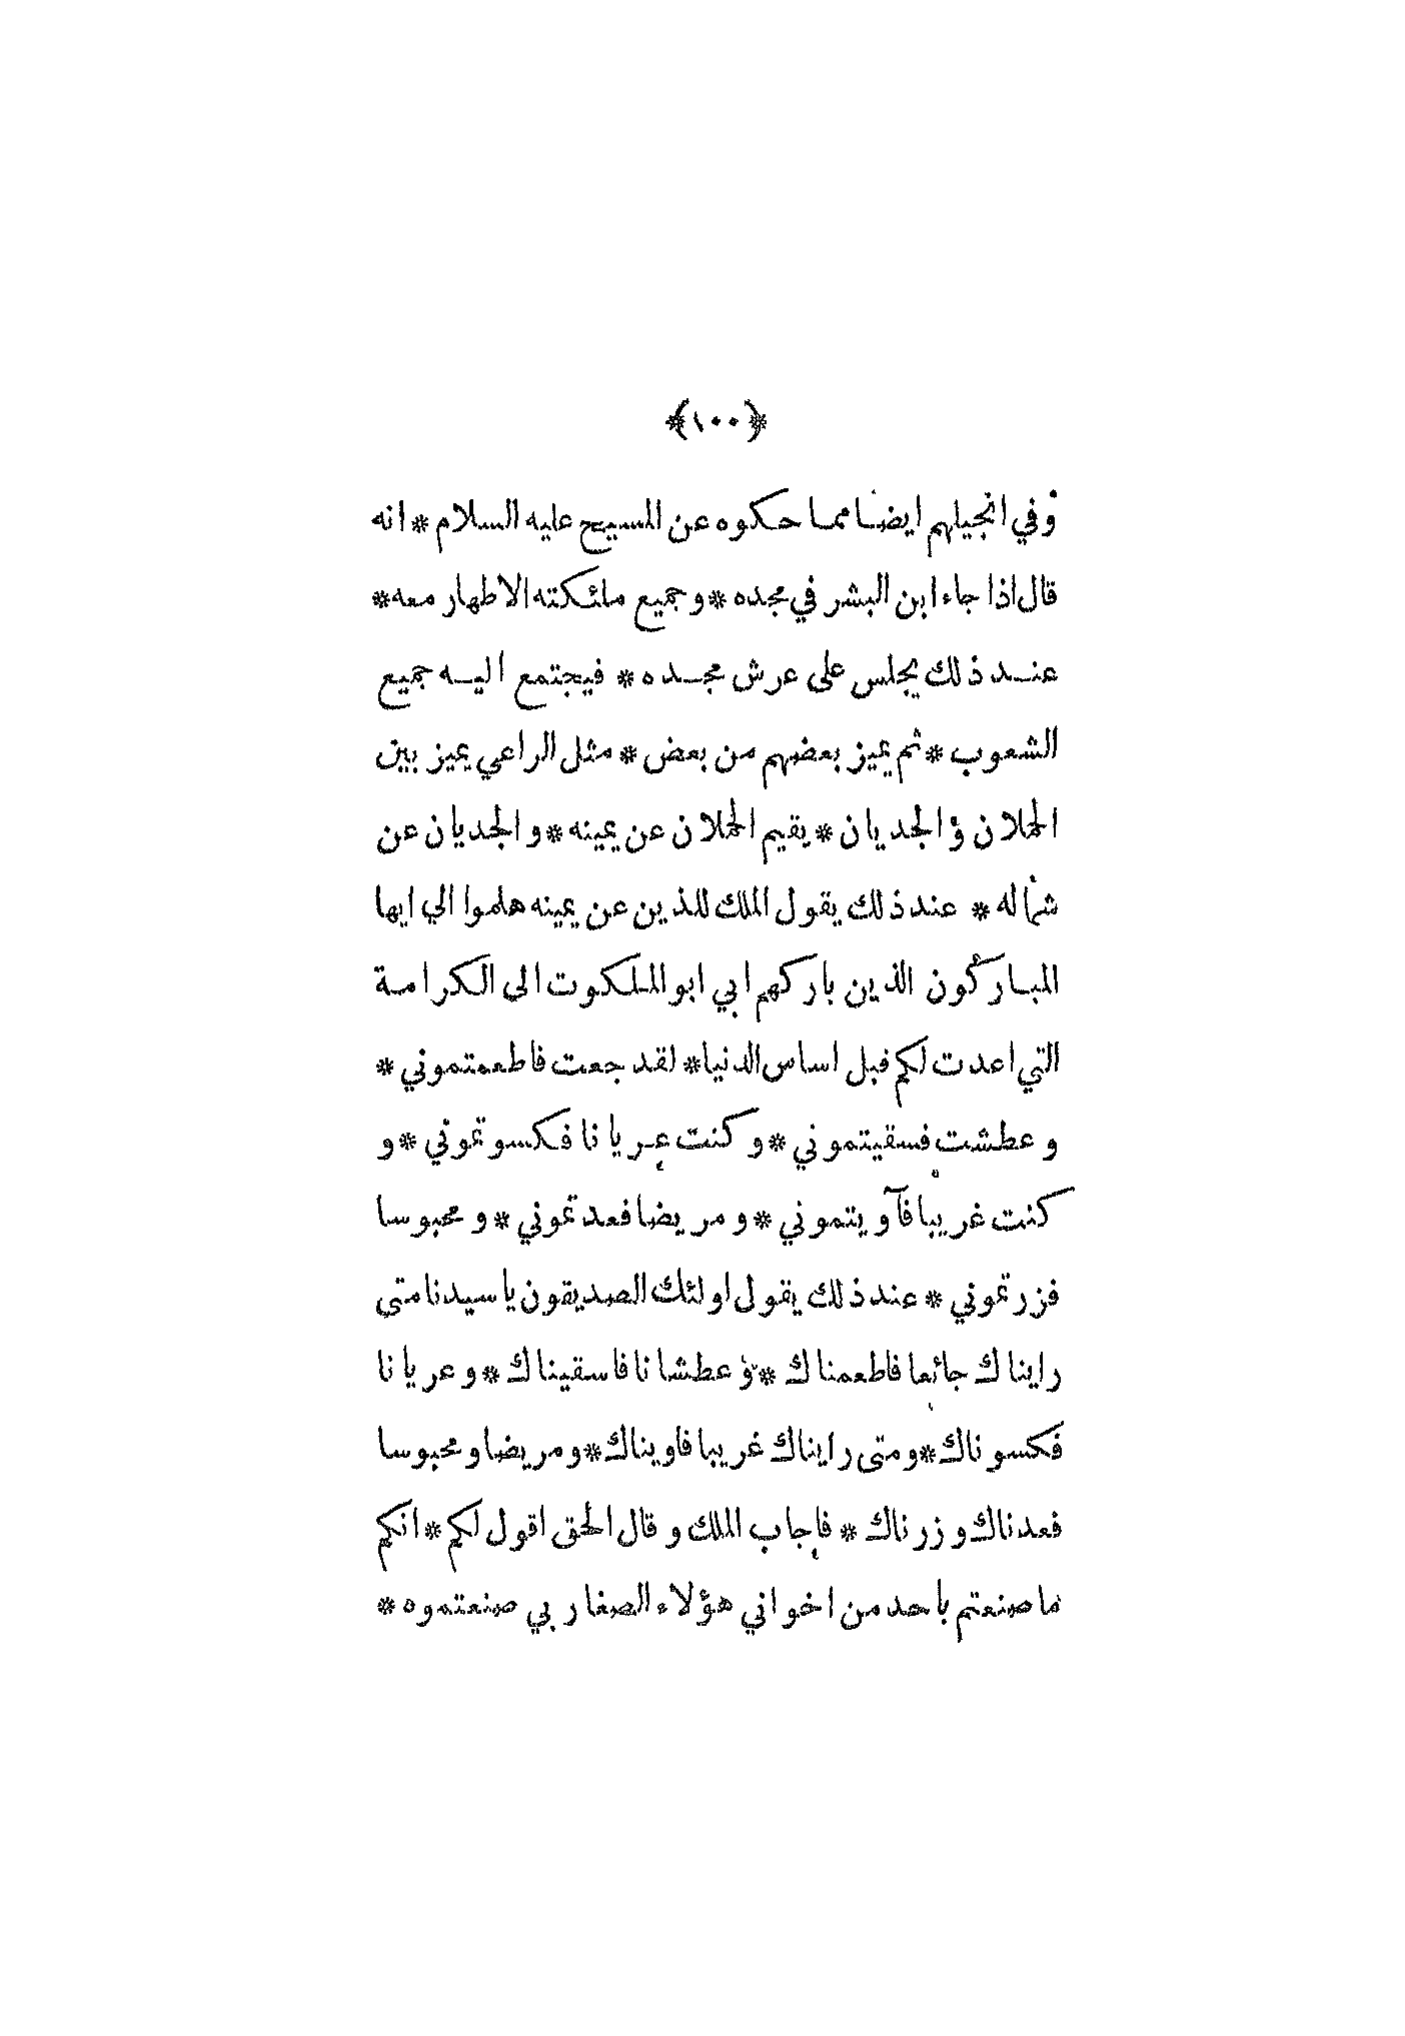 ﴿١٠٠﴾
وفي انجيلهم ايضا مما حكوه عن المسيح عليه السلام * انه
قال اذا جاء ابن البشر في مجده * وجميع ملئكته الاطهار معه *
عند ذلك يجلس على عرش مجده * فيجتمع اليه جميع
الشعوب * ثم يميز بعضهم من بعض * مثل الراعي يميز بين
الحملان والجديان * يقيم الحملان عن يمينه * والجديان عن
شماله * عند ذلك يقول الملك للذين عن يمينه هلموا الي ايها
المباركون الذين باركهم ابي ابو الملكوت الى الكرامة
التي اعدت لكم قبل اساس الدنيا * لقد جعت فاطعمتموني *
و عطشت فسقيتموني * وكنت عريانا فكسوتموني * و
كنت غريبا فآويتموني * ومريضا فعدتموني * ومحبوسا
فزرتموني * عند ذلك يقول اولئك الصديقون يا سيدنا متى
رايناك جائعا فاطعمناك * وعطشانا فاسقيناك * وعريانا
فكسوناك * ومتى رايناك غريبا فاويناك * ومريضا ومحبوسا
فعدناك وزرناك * فاجاب الملك وقال الحق اقول لكم * انكم
ما صنعتم باحد من اخواني هؤلاء الصغار بي صنعتموه *